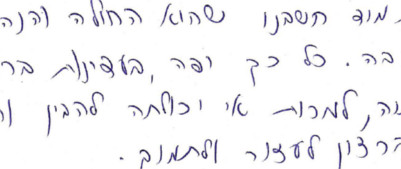 תמיד חשבנו שהוא החולה והנה
בה. כל כך יפה, בעדינות בר
למרות אי יכולתה להבין
ברצון לעזור ולתמוך.